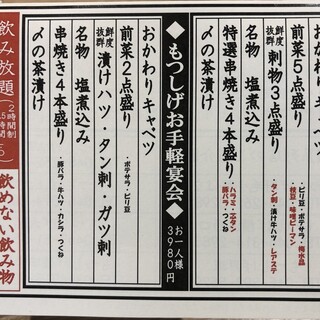 おかわりキャベツ
前菜5点盛り
・ピリ豆・ポテサラ・梅水晶
・枝豆・味噌ピーマン
鮮度抜群 刺物3点盛り
・タン刺・漬け牛ハツ・レアステ
名物 塩煮込み
特選串焼き4本盛り
・ハラミ・芯タン
・豚バラ・つくね
〆の茶漬け
◆もつしげお手軽宴会◆
お一人様
3980円
おかわりキャベツ
前菜2点盛り
・ポテサラ・ピリ豆
鮮度抜群 漬けハツ・タン刺・ガツ刺
名物 塩煮込み
串焼き4本盛り
・豚バラ・牛ハツ・カシラ・つくね
〆の茶漬け
飲み放題
2時間制
飲めない飲み物